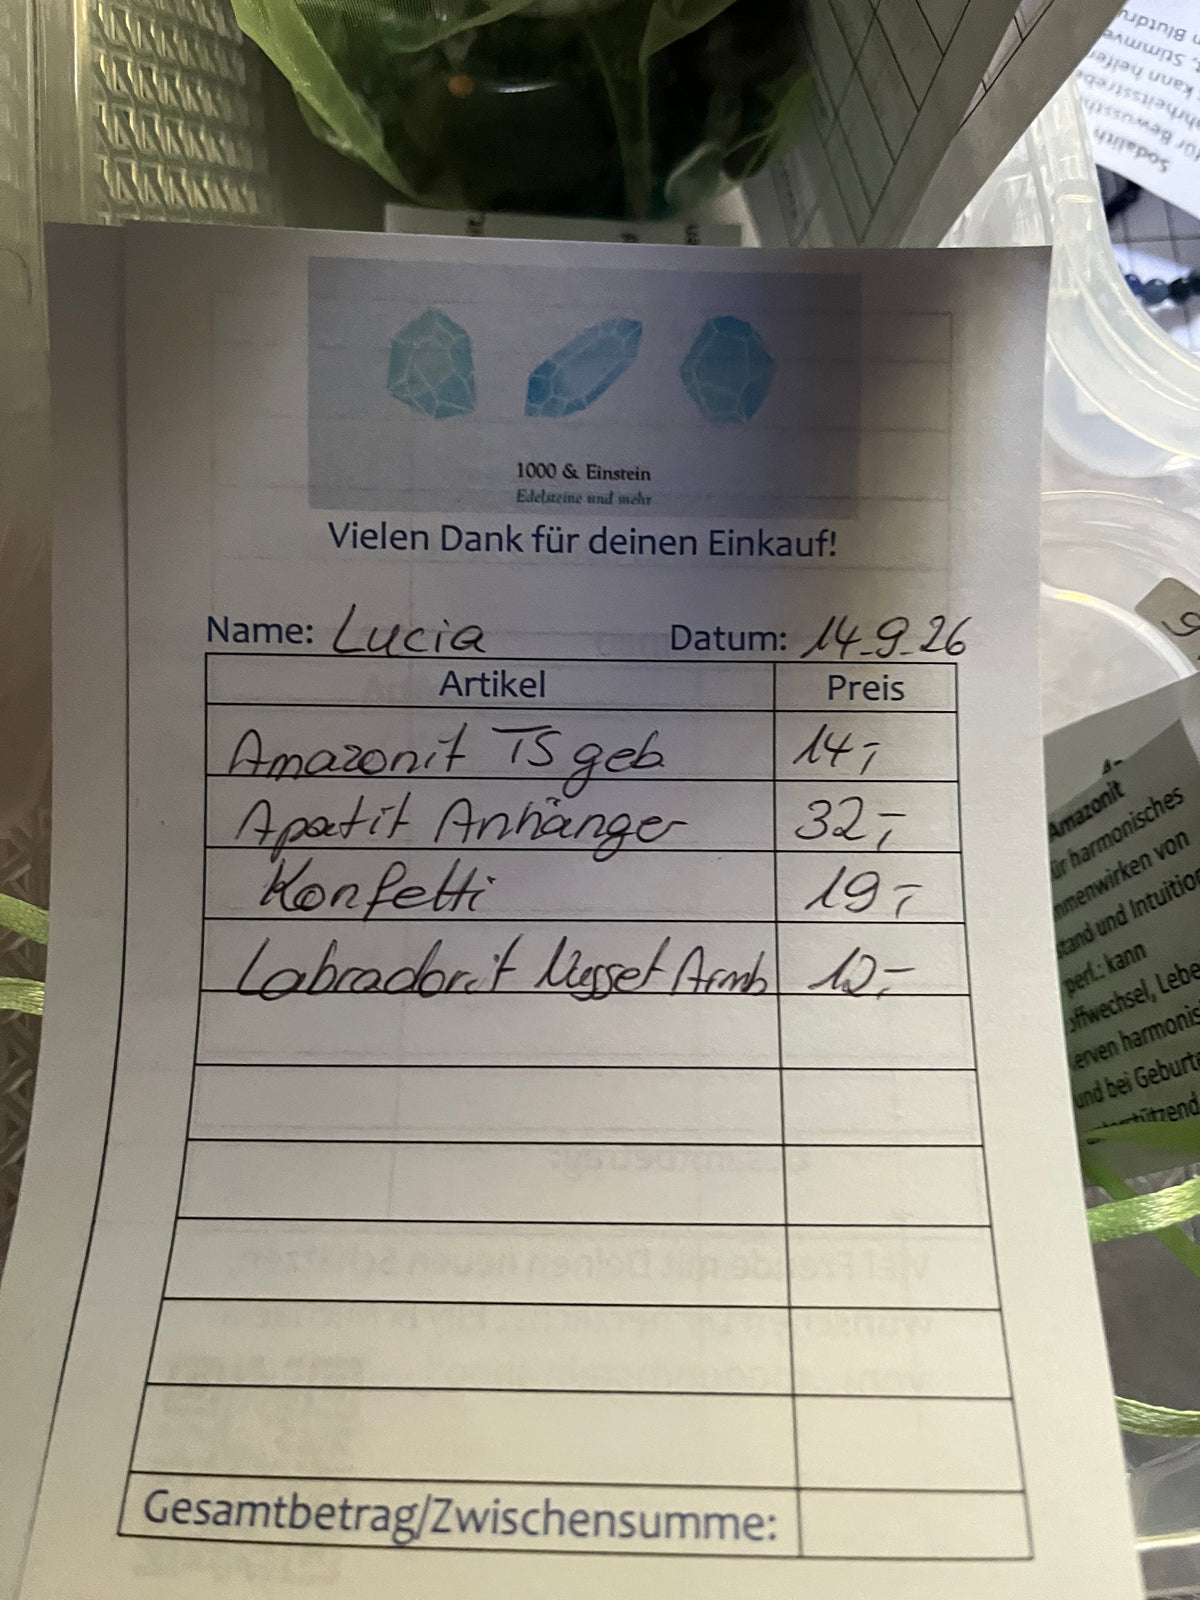 1000 & Einstein
Edelsteine und mehr
Vielen Dank für deinen Einkauf!
Name: Lucia Datum: 14.9.26
Artikel Preis
Amazonit TS geb. 14,-
Apatit Anhänger 32,-
Konfetti 19,-
Labradorit Nugget Armb 12,-
Gesamtbetrag/Zwischensumme:
Amazonit
für harmonisches
mmenwirken von
stand und Intuition
perl.: kann
offwechsel, Lebe
erven harmonis
und bei Geburte
unterstützend
Sodalith
für Bewussth
ahrheitsstrebe
kann helfen
, Stimmve
n Blutdru